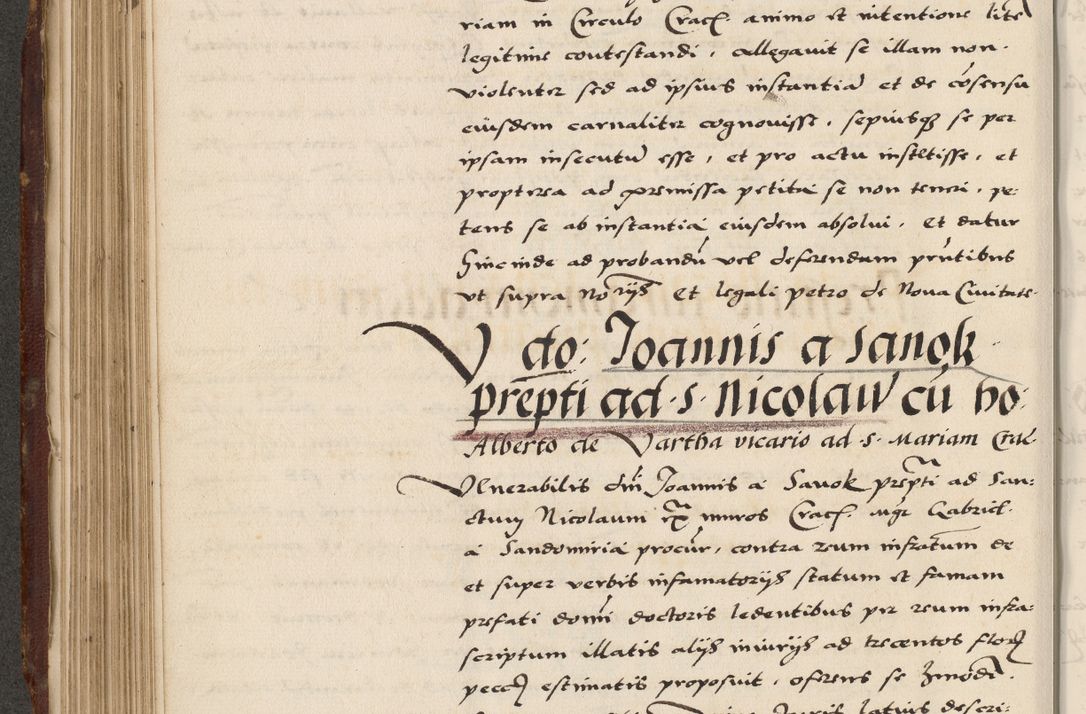 riam in Circulo Cracf. animo et intentione lite
legitime contestandi, allegauit se illam non
violenter sed ad ipsius instantia et de cōsensu
eiusdem carnaliter cognouisse, sepiusqȝ se per
ipsam insecutū esse, et pro actu institisse, et
propterea ad premissa petita se non teneri, pe:
tens se ab instantia eiusdem absolui. Et datur
hincinde ad probandū vel deferendum prn̄tibus
vt supra Norijs Et legali petro de Noua Ciuitate
V do: Joannis a Sanok
prepti ad .s. Nicolau cū ho:
Alberto de Vartha vicario ad .s. Mariam Crac
Vlnerabilis dni Joannis a Sanok prepti ad San:
ctum Nicolaum ex muros Cracf. mgr Gabriel
a Sandomiria procur, contra reum infratum de
et super verbis infamatorijs statum et famam
prefati domi doctoris ledentibus per reum infra:
scriptum illatis alijs iniurijs ad trecentos flor
pecc estimatis proposuit, offerens se
Juris latius descri: